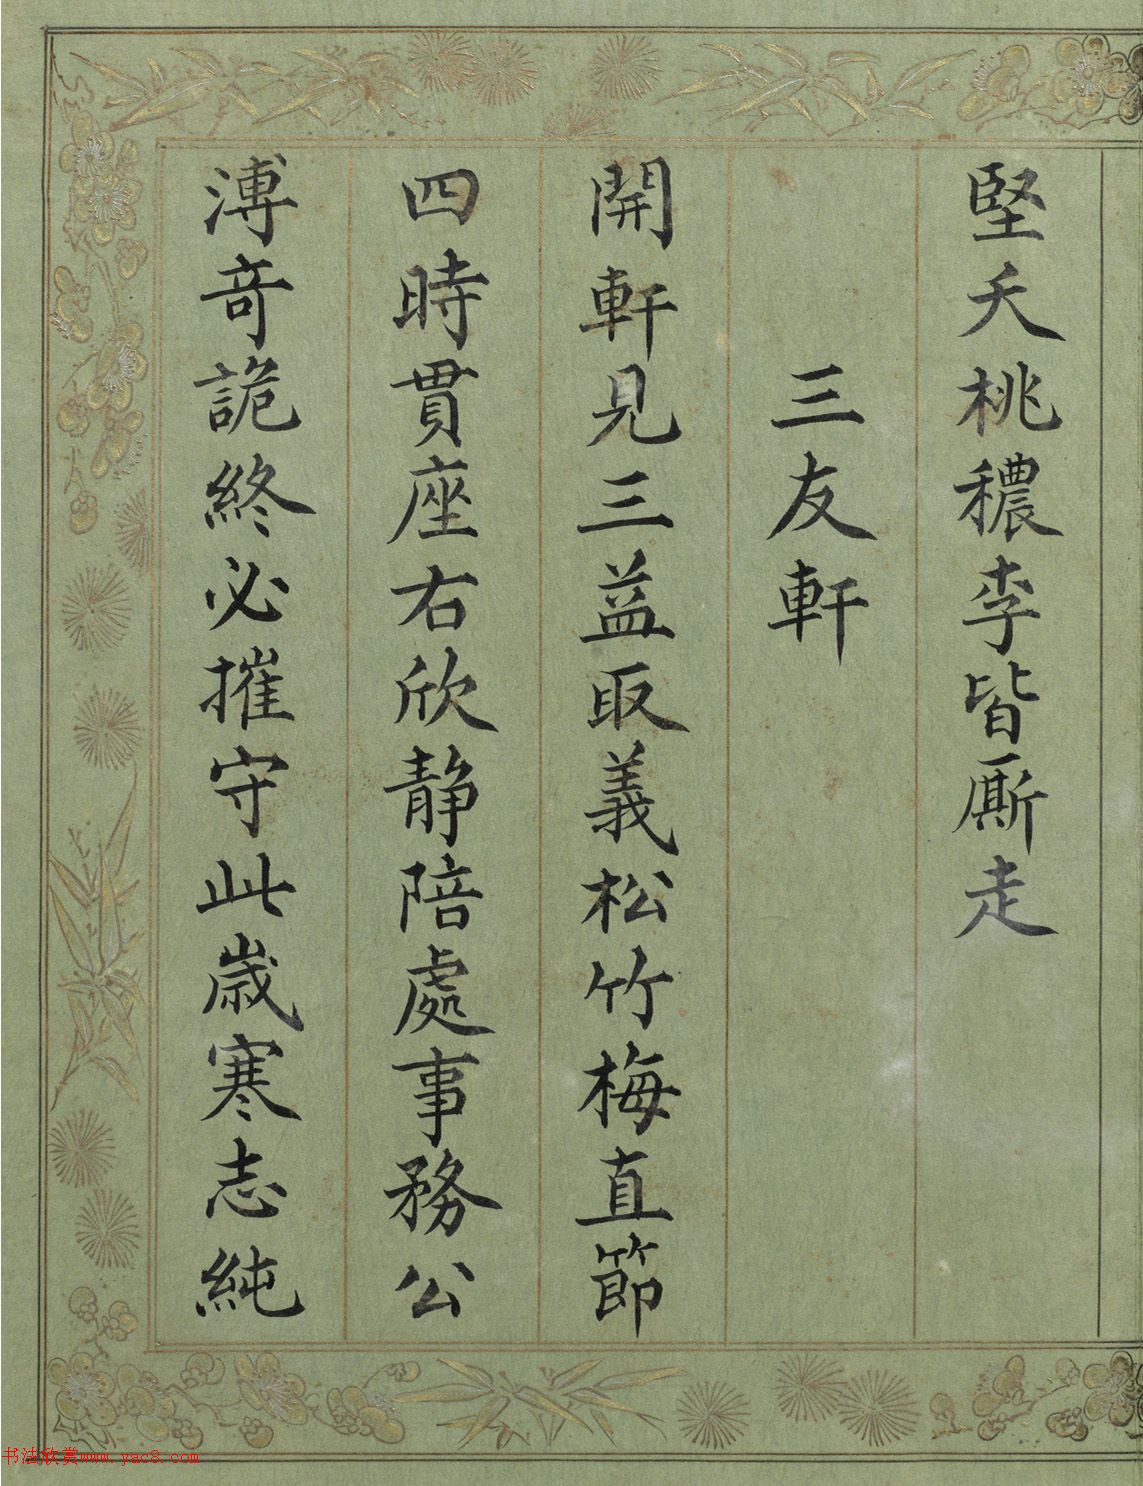 堅夭桃穠李皆厮走
三友軒
開軒見三益取義松竹梅直節
四時貫座右欣静陪處事務公
溥竒詭終必摧守此歳寒志純
书法欣赏www.yac8.com